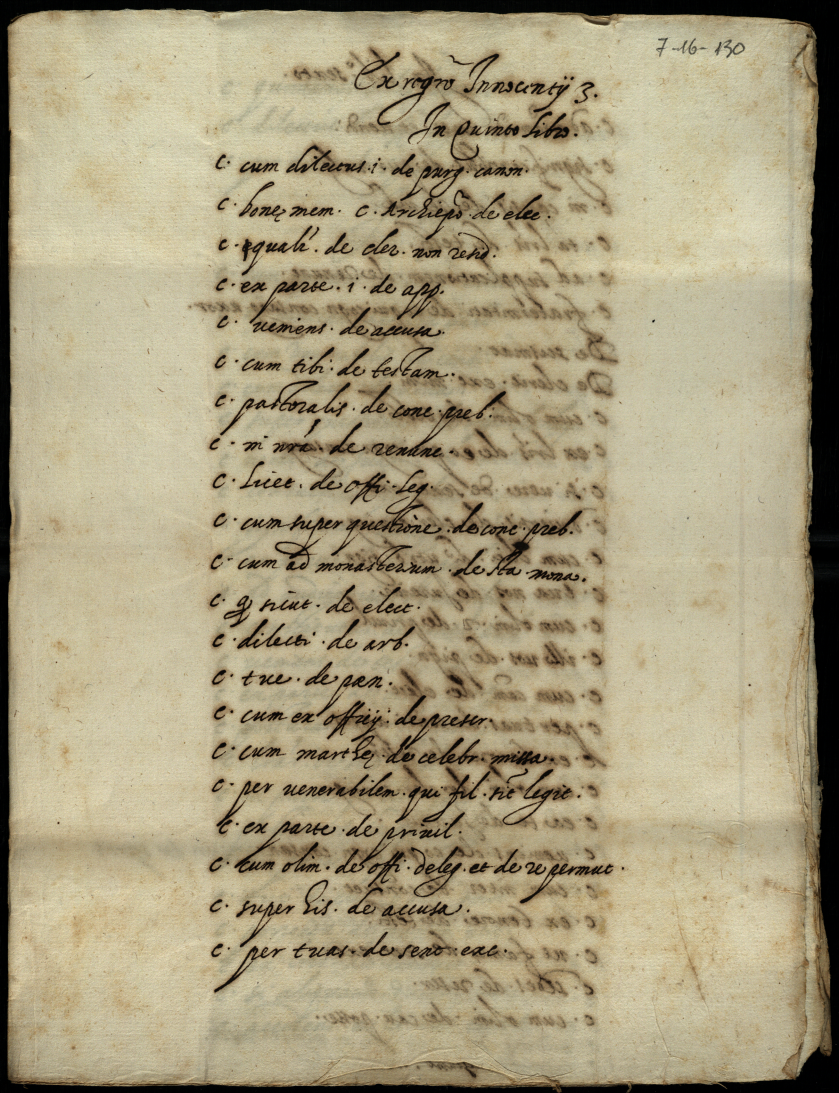 7-16-130
Ex regrõ Innocentij 3.
In Quinto libro.
c. cum dilectus. i. de purg. canon.
c. bonę mem. c. Archiepõ de elec.
c. qualr̃. de cler. non resid.
c. ex parte. i. de app.
c. veniens. de accusa.
c. cum tibi. de testam.
c. pastoralis. de conc. preb.
c. in nrã. de renunc.
c. licet. de offi. leg.
c. cum super questione. de conc. preb.
c. cum ad monasterium. de sta. mona.
c. sicut. de elect.
c. dilecti. de arb.
c. tue. de pæn.
c. cum ex officij. de prescr.
c. cum marthę. de celebr. missa.
c. per venerabilem. qui fil. sīt legit.
c. ex parte. de privil.
c. cum olim. de offi. deleg. et de re permut.
c. super his. de accusa.
c. per tuas. de sent. exc.